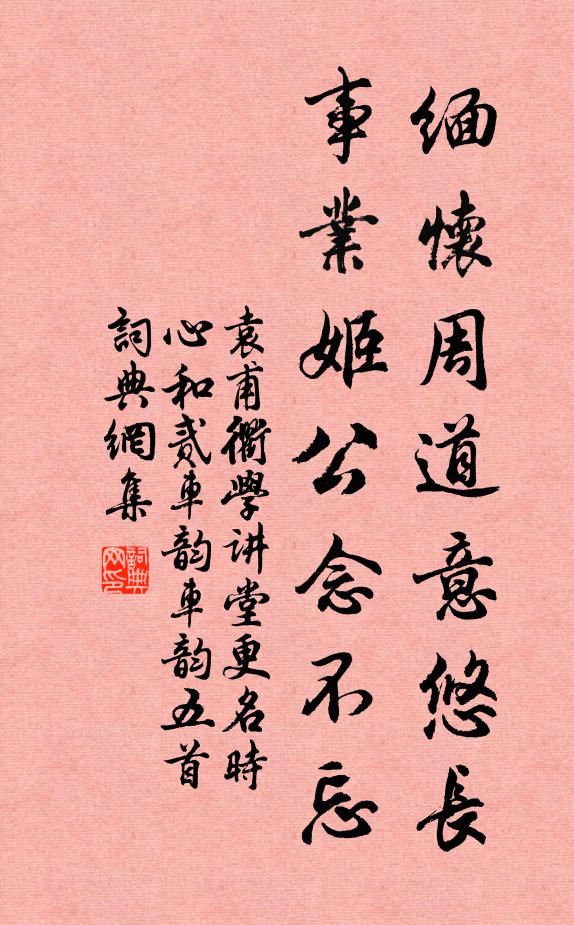 緬懷周道意悠長
事業姬公念不忘
袁甫衢學讲堂更名時
心和貳車韵車韵五首
詞典網集
詞典
网印